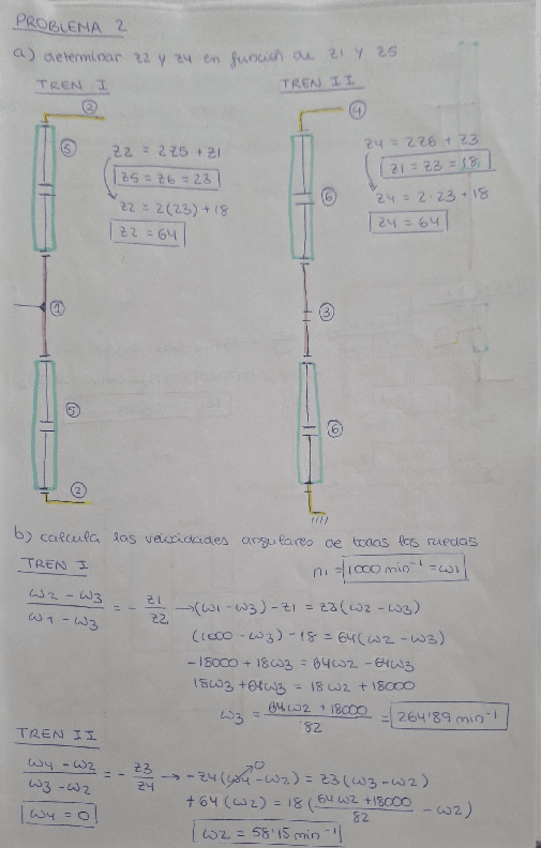 PROBLEMA 2
a) determinar z2 y z4 en función de z1 y z5
TREN I
②
⑤
z2 = 2z5 + z1
z5 = z6 = 23
z2 = 2(23) + 18
z2 = 64
①
⑤
②
TREN II
④
⑥
z4 = 2z6 + z3
z1 = z3 = 18
z4 = 2·23 + 18
z4 = 64
③
⑥
b) calcula las velocidades angulares de todas las ruedas
TREN I
n1 = 1000 min⁻¹ = ω1
(ω2 - ω3)/(ω1 - ω3) = - z1/z2 → (ω1 - ω3) - z1 = z3(ω2 - ω3)
(1000 - ω3) - 18 = 64(ω2 - ω3)
-18000 + 18ω3 = 64ω2 - 64ω3
18ω3 + 64ω3 = 18ω2 + 18000
ω3 = (64ω2 + 18000)/82 = 264'89 min⁻¹
TREN II
(ω4 - ω2)/(ω3 - ω2) = - z3/z4 → -z4(ω4 - ω2) = z3(ω3 - ω2)
0
ω4 = 0
+64(ω2) = 18((64ω2 + 18000)/82 - ω2)
ω2 = 58'15 min⁻¹